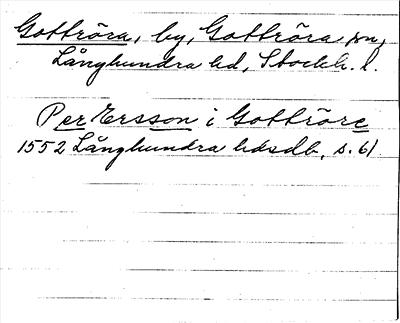 Gottröra, by, Gottröra sn,
Långhundra hd, Stockh. l.
Per Ersson i Gottröre
1552 Långhundra hdsdb, s. 61